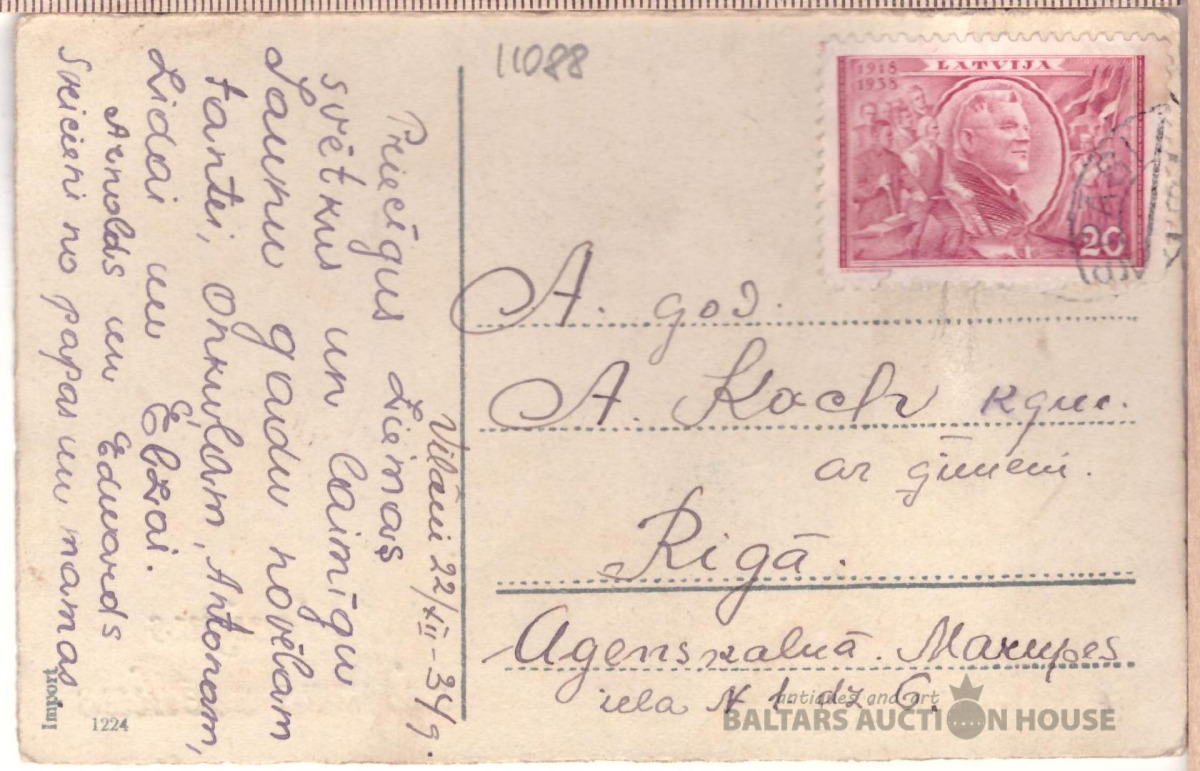 11088
1918
1938
LATVIJA
20
Viļāni 22/XII-34g.
Priecīgus Ziemas
svētkus un laimīgu
Jaunu gadu novēlam
tantei, onkulam, Antonam,
Lidai un Elzai.
Arnolds un Edvards
Sveicieni no papas un mamas
A. god.
A. Koch kgm.
ar ģimeni.
Rīgā.
Agenskalnā. Marupes
iela N 1 dz 6.
Import
1224
antiques and art
BALTARS AUCTION HOUSE